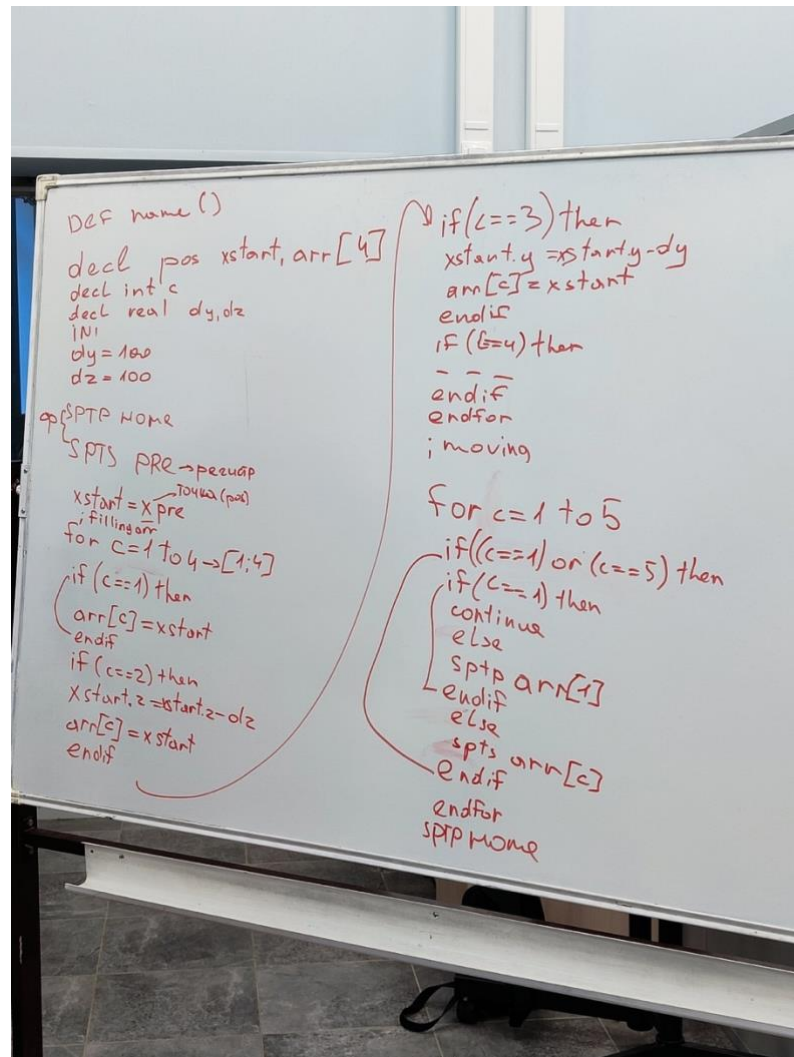 DEF name ()
decl pos xstart, arr[4]
decl int c
decl real dy,dz
INI
dy = 100
dz = 100
SPTP HOME
SPTS PRE → регистр
xstart = xpre → точка (pos)
; filling arr
for c=1 to 4 → [1;4]
if (c==1) then
arr[c]=xstart
endif
if (c==2) then
xstart.z=xstart.z-dz
arr[c]=xstart
endif
if(c==3) then
xstart.y=xstart.y-dy
arr[c]=xstart
endif
if (c=4) then
_ _ _
endif
endfor
; moving
for c=1 to 5
if((c==1) or (c==5) then
if(c==1) then
continue
else
sptp arr[1]
endif
else
spts arr[c]
endif
endfor
SPTP HOME